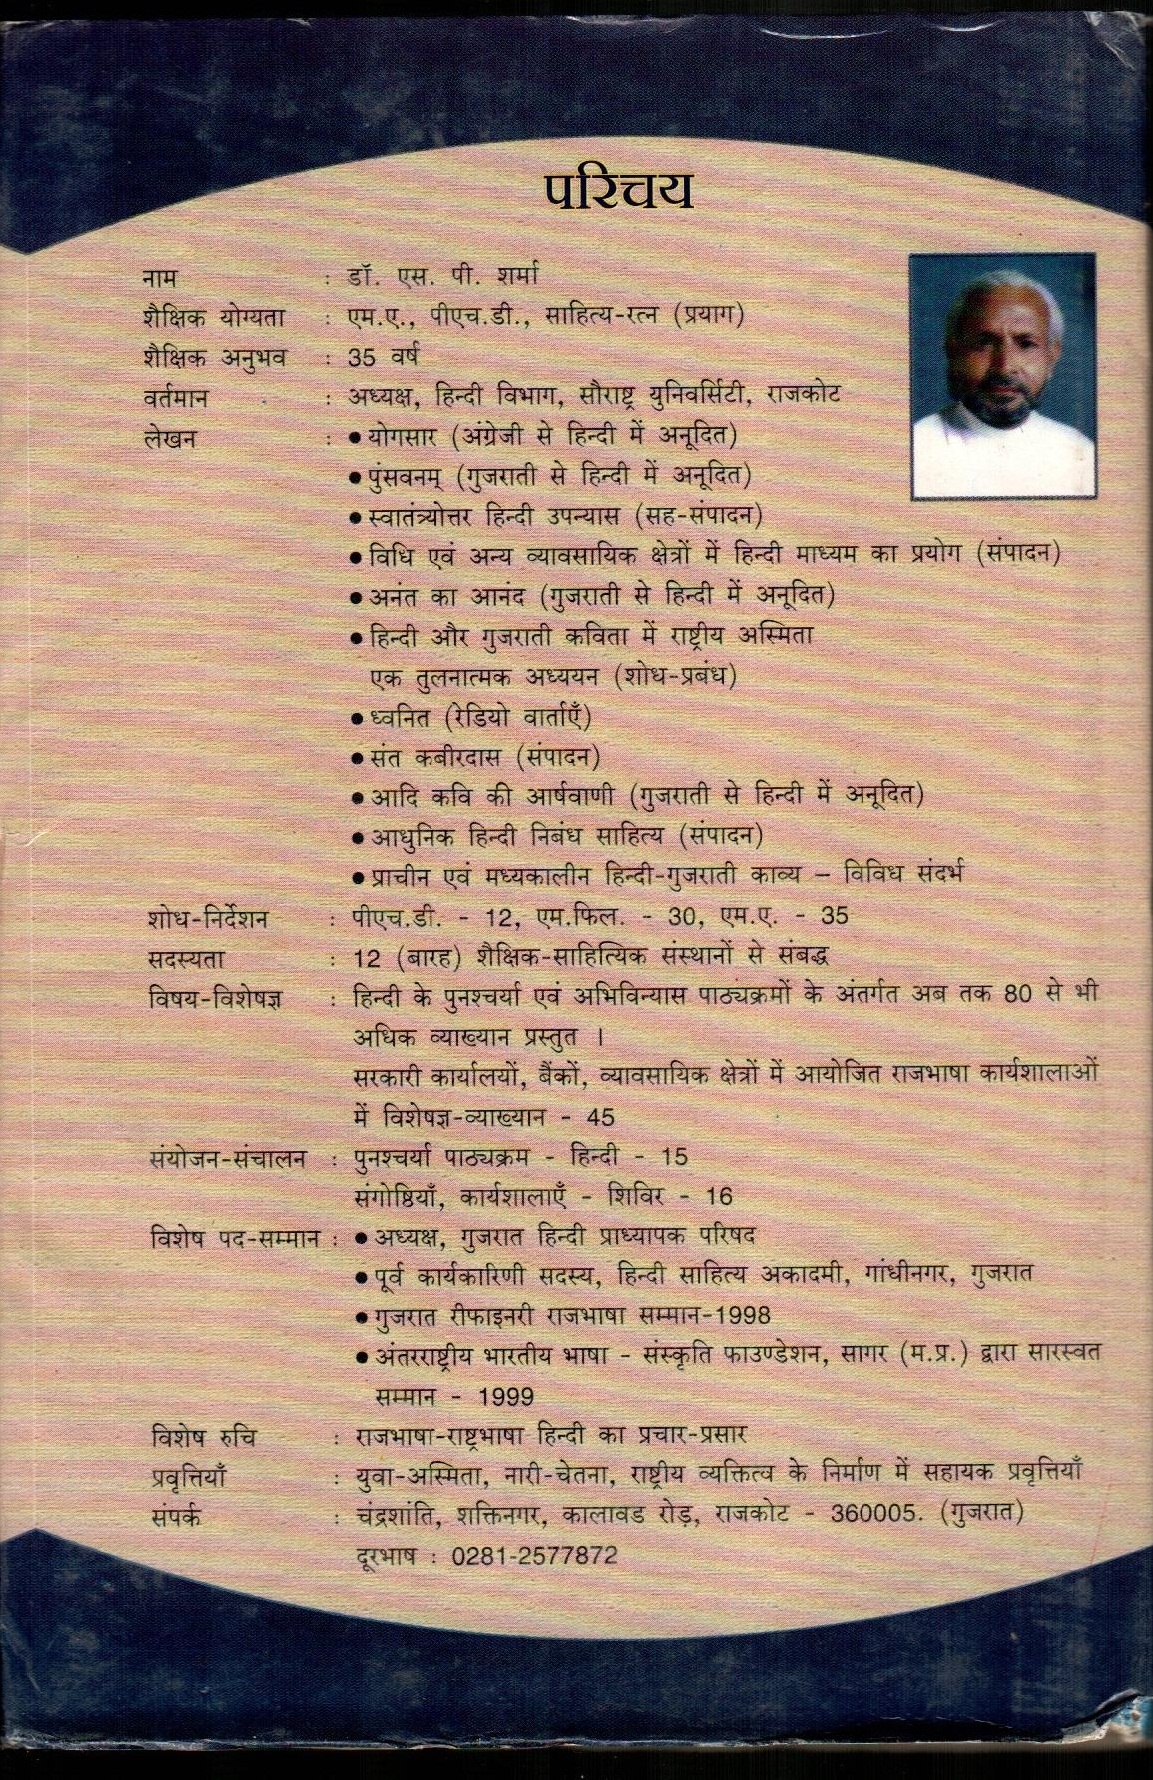 परिचय
नाम : डॉ. एस. पी. शर्मा
शैक्षिक योग्यता : एम.ए., पीएच.डी., साहित्य-रत्न (प्रयाग)
शैक्षिक अनुभव : 35 वर्ष
वर्तमान : अध्यक्ष, हिन्दी विभाग, सौराष्ट्र युनिवर्सिटी, राजकोट
लेखन : ● योगसार (अंग्रेजी से हिन्दी में अनूदित)
● पुंसवनम् (गुजराती से हिन्दी में अनूदित)
● स्वातंत्र्योत्तर हिन्दी उपन्यास (सह-संपादन)
● विधि एवं अन्य व्यावसायिक क्षेत्रों में हिन्दी माध्यम का प्रयोग (संपादन)
● अनंत का आनंद (गुजराती से हिन्दी में अनूदित)
● हिन्दी और गुजराती कविता में राष्ट्रीय अस्मिता
एक तुलनात्मक अध्ययन (शोध-प्रबंध)
● ध्वनित (रेडियो वार्ताएँ)
● संत कबीरदास (संपादन)
● आदि कवि की आर्षवाणी (गुजराती से हिन्दी में अनूदित)
● आधुनिक हिन्दी निबंध साहित्य (संपादन)
● प्राचीन एवं मध्यकालीन हिन्दी-गुजराती काव्य – विविध संदर्भ
शोध-निर्देशन : पीएच.डी. - 12, एम.फिल. - 30, एम.ए. - 35
सदस्यता : 12 (बारह) शैक्षिक-साहित्यिक संस्थानों से संबद्ध
विषय-विशेषज्ञ : हिन्दी के पुनश्चर्या एवं अभिविन्यास पाठ्यक्रमों के अंतर्गत अब तक 80 से भी
अधिक व्याख्यान प्रस्तुत ।
सरकारी कार्यालयों, बैंकों, व्यावसायिक क्षेत्रों में आयोजित राजभाषा कार्यशालाओं
में विशेषज्ञ-व्याख्यान - 45
संयोजन-संचालन : पुनश्चर्या पाठ्यक्रम - हिन्दी - 15
संगोष्ठियाँ, कार्यशालाएँ - शिविर - 16
विशेष पद-सम्मान : ● अध्यक्ष, गुजरात हिन्दी प्राध्यापक परिषद
● पूर्व कार्यकारिणी सदस्य, हिन्दी साहित्य अकादमी, गांधीनगर, गुजरात
● गुजरात रीफाइनरी राजभाषा सम्मान-1998
● अंतरराष्ट्रीय भारतीय भाषा - संस्कृति फाउण्डेशन, सागर (म.प्र.) द्वारा सारस्वत
सम्मान - 1999
विशेष रुचि : राजभाषा-राष्ट्रभाषा हिन्दी का प्रचार-प्रसार
प्रवृत्तियाँ : युवा-अस्मिता, नारी-चेतना, राष्ट्रीय व्यक्तित्व के निर्माण में सहायक प्रवृत्तियाँ
संपर्क : चंद्रशांति, शक्तिनगर, कालावड रोड़, राजकोट - 360005. (गुजरात)
दूरभाष : 0281-2577872